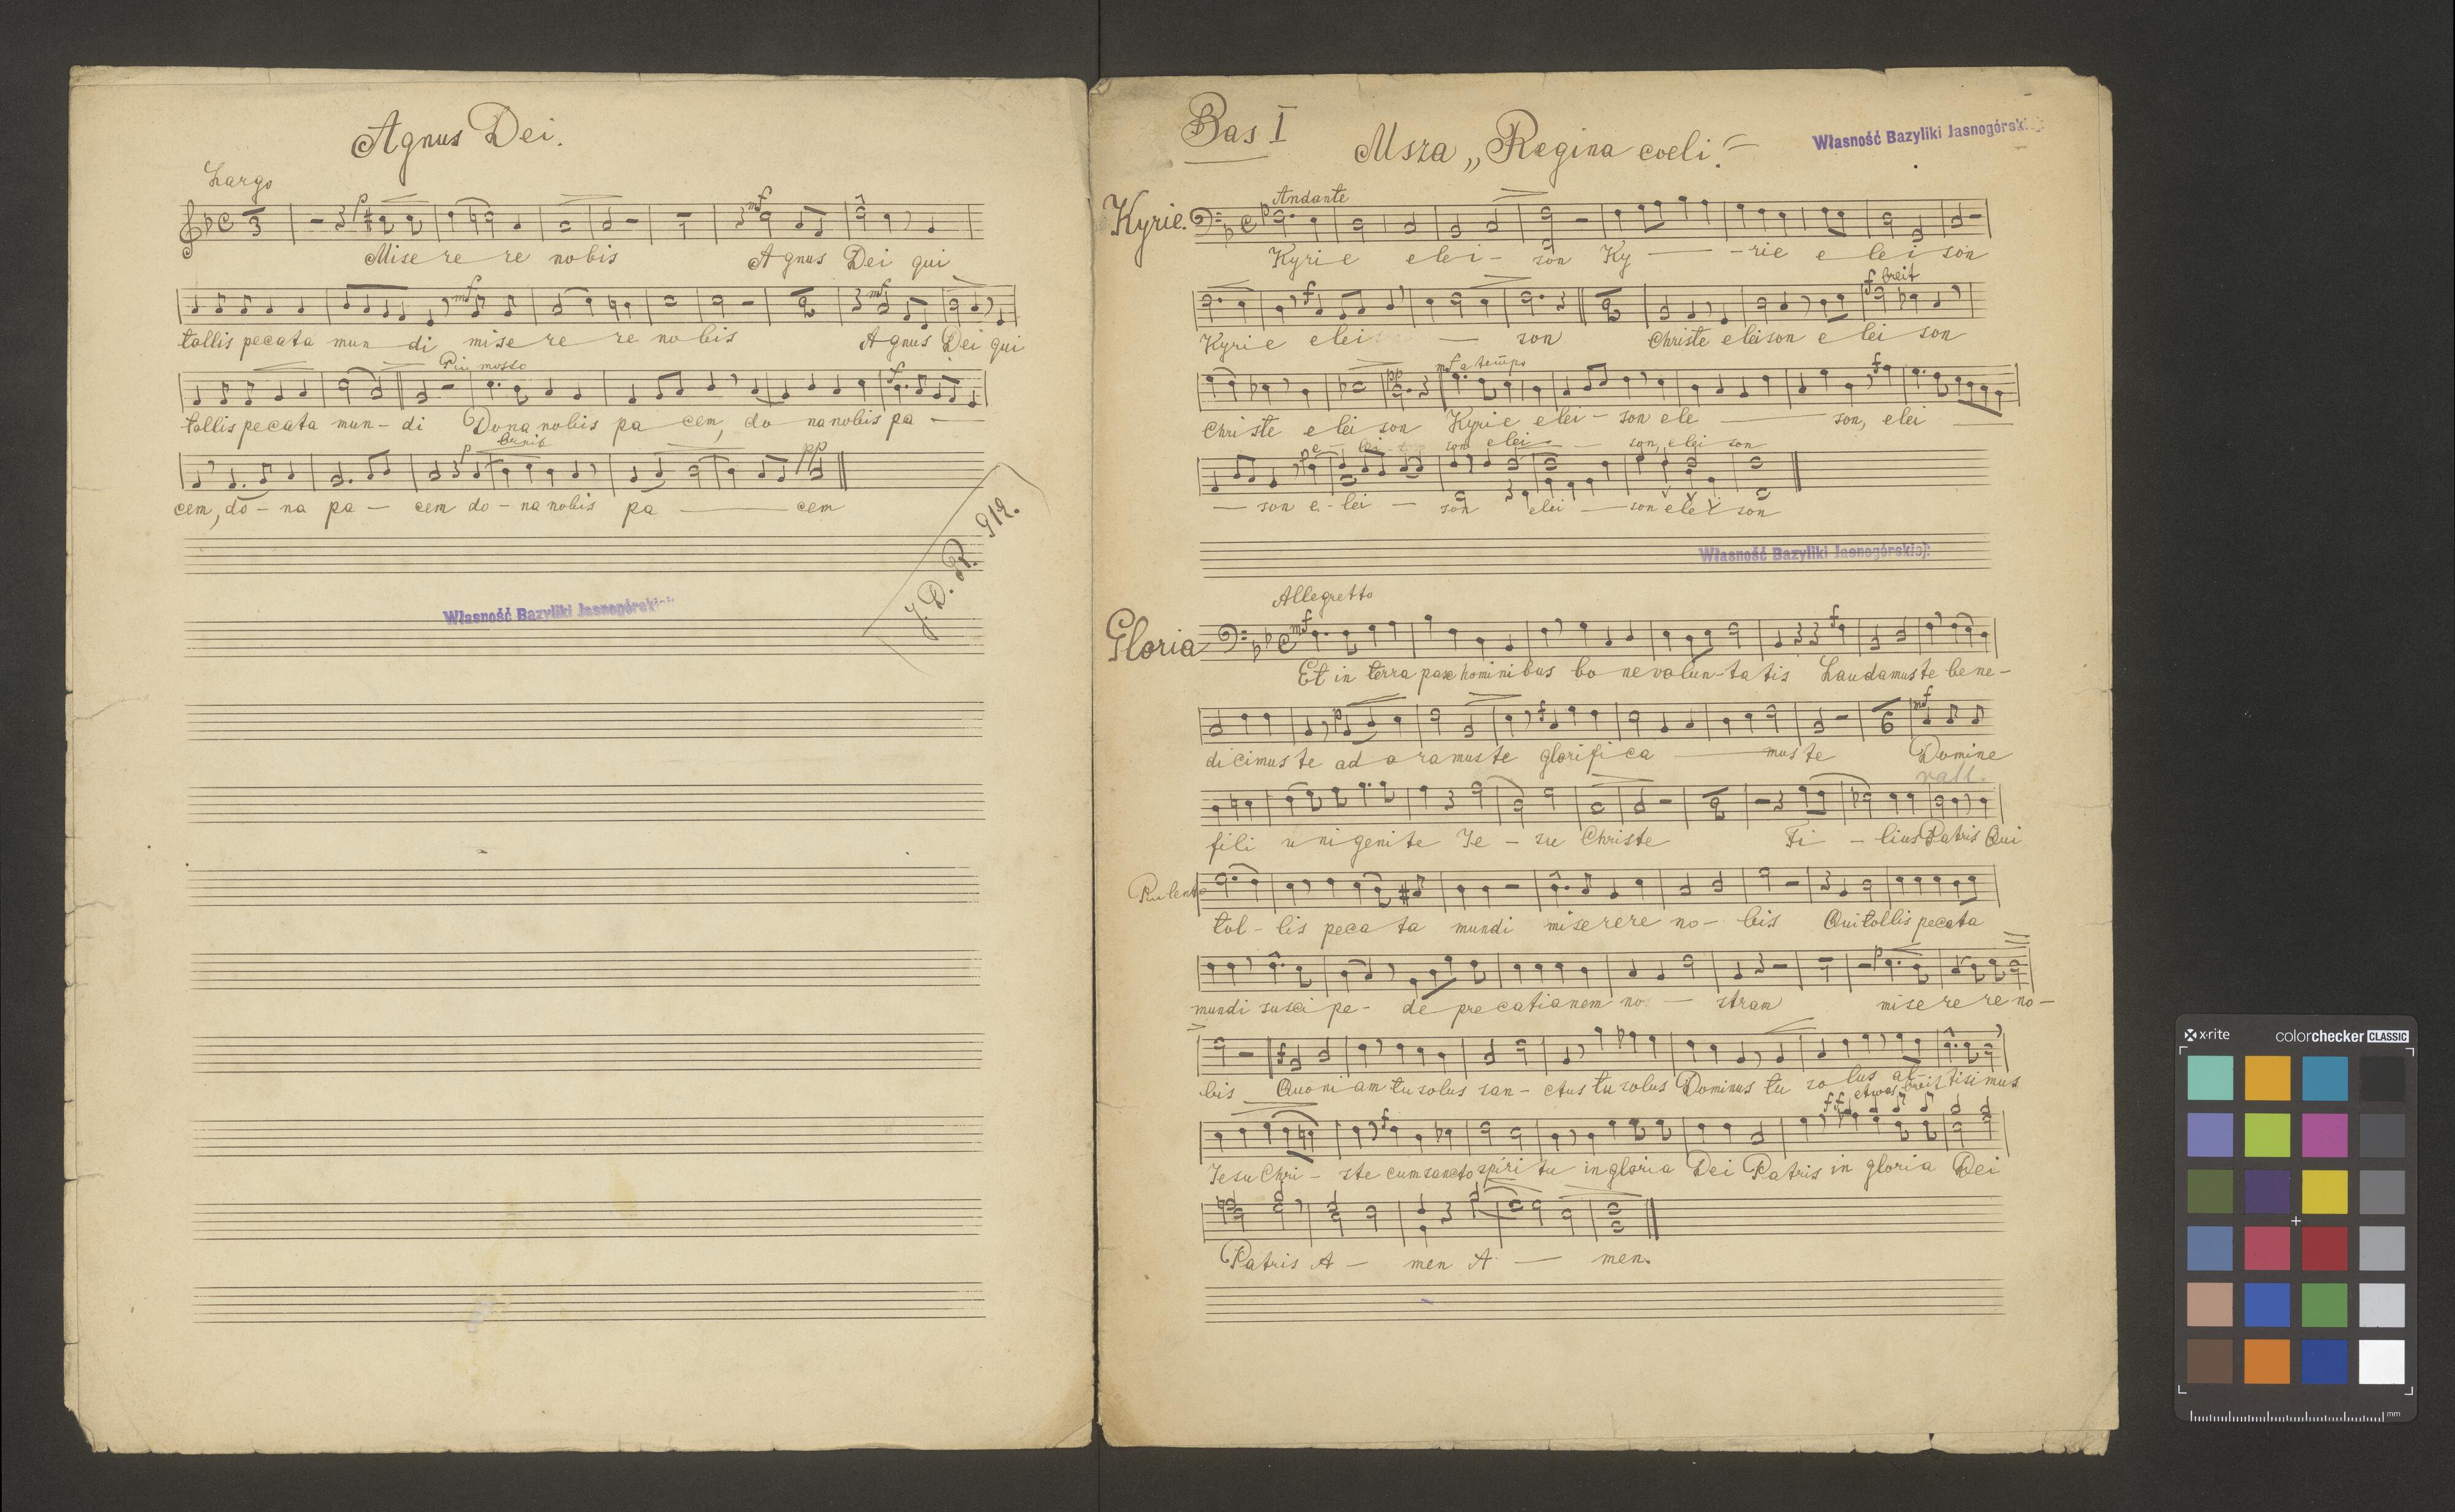 Agnus Dei.
Largo
3
p
mf
Mise re re nobis Agnus Dei qui
mf
mf
tollis pecata mun di mise re re no bis Agnus Dei qui
Piu mosso
f
tollis pecata mun - di Dona nobis pa cem, do na nobis pa —
p
pp
cem, do - na pa - cem do - na nobis pa — cem
J. D. P. 912.
Własność Bazyliki Jasnogórskiej
Bas I
Msza „Regina coeli."
Własność Bazyliki Jasnogórskiej
Kyrie.
Andante
p
Kyrie elei - son Ky — - rie e lei son
f
f breit
Kyrie elei — son Christe eleison e lei son
pp
mf a tempo
f
Christe e lei son Kyrie elei - son ele — son, elei —
p e - lei son elei - son, elei son
— son e - lei — son elei — son elei son
Własność Bazyliki Jasnogórskiej
Allegretto
Gloria
mf
f
Et in terra pax hominibus bo ne volun - ta tis Laudamus te bene -
p
f
6
mf
dicimus te ad o ramus te glorifica — mus te Domine
rall.
fili unigenite Je - su Christe Fi - lius Patris Qui
Piu lento
tol - lis peca ta mundi miserere no - bis Qui tollis pecata
p
mundi susci pe - de precatianem no — stram mise re re no -
f
bis Quoniam tu solus san - ctus tu solus Dominus tu so lus al - tisimus
ff etwas breit
f
Jesu Chri - ste cum sancto spiri tu in gloria Dei Patris in gloria Dei
Patris A - men A — men.
x-rite
colorchecker CLASSIC
mm